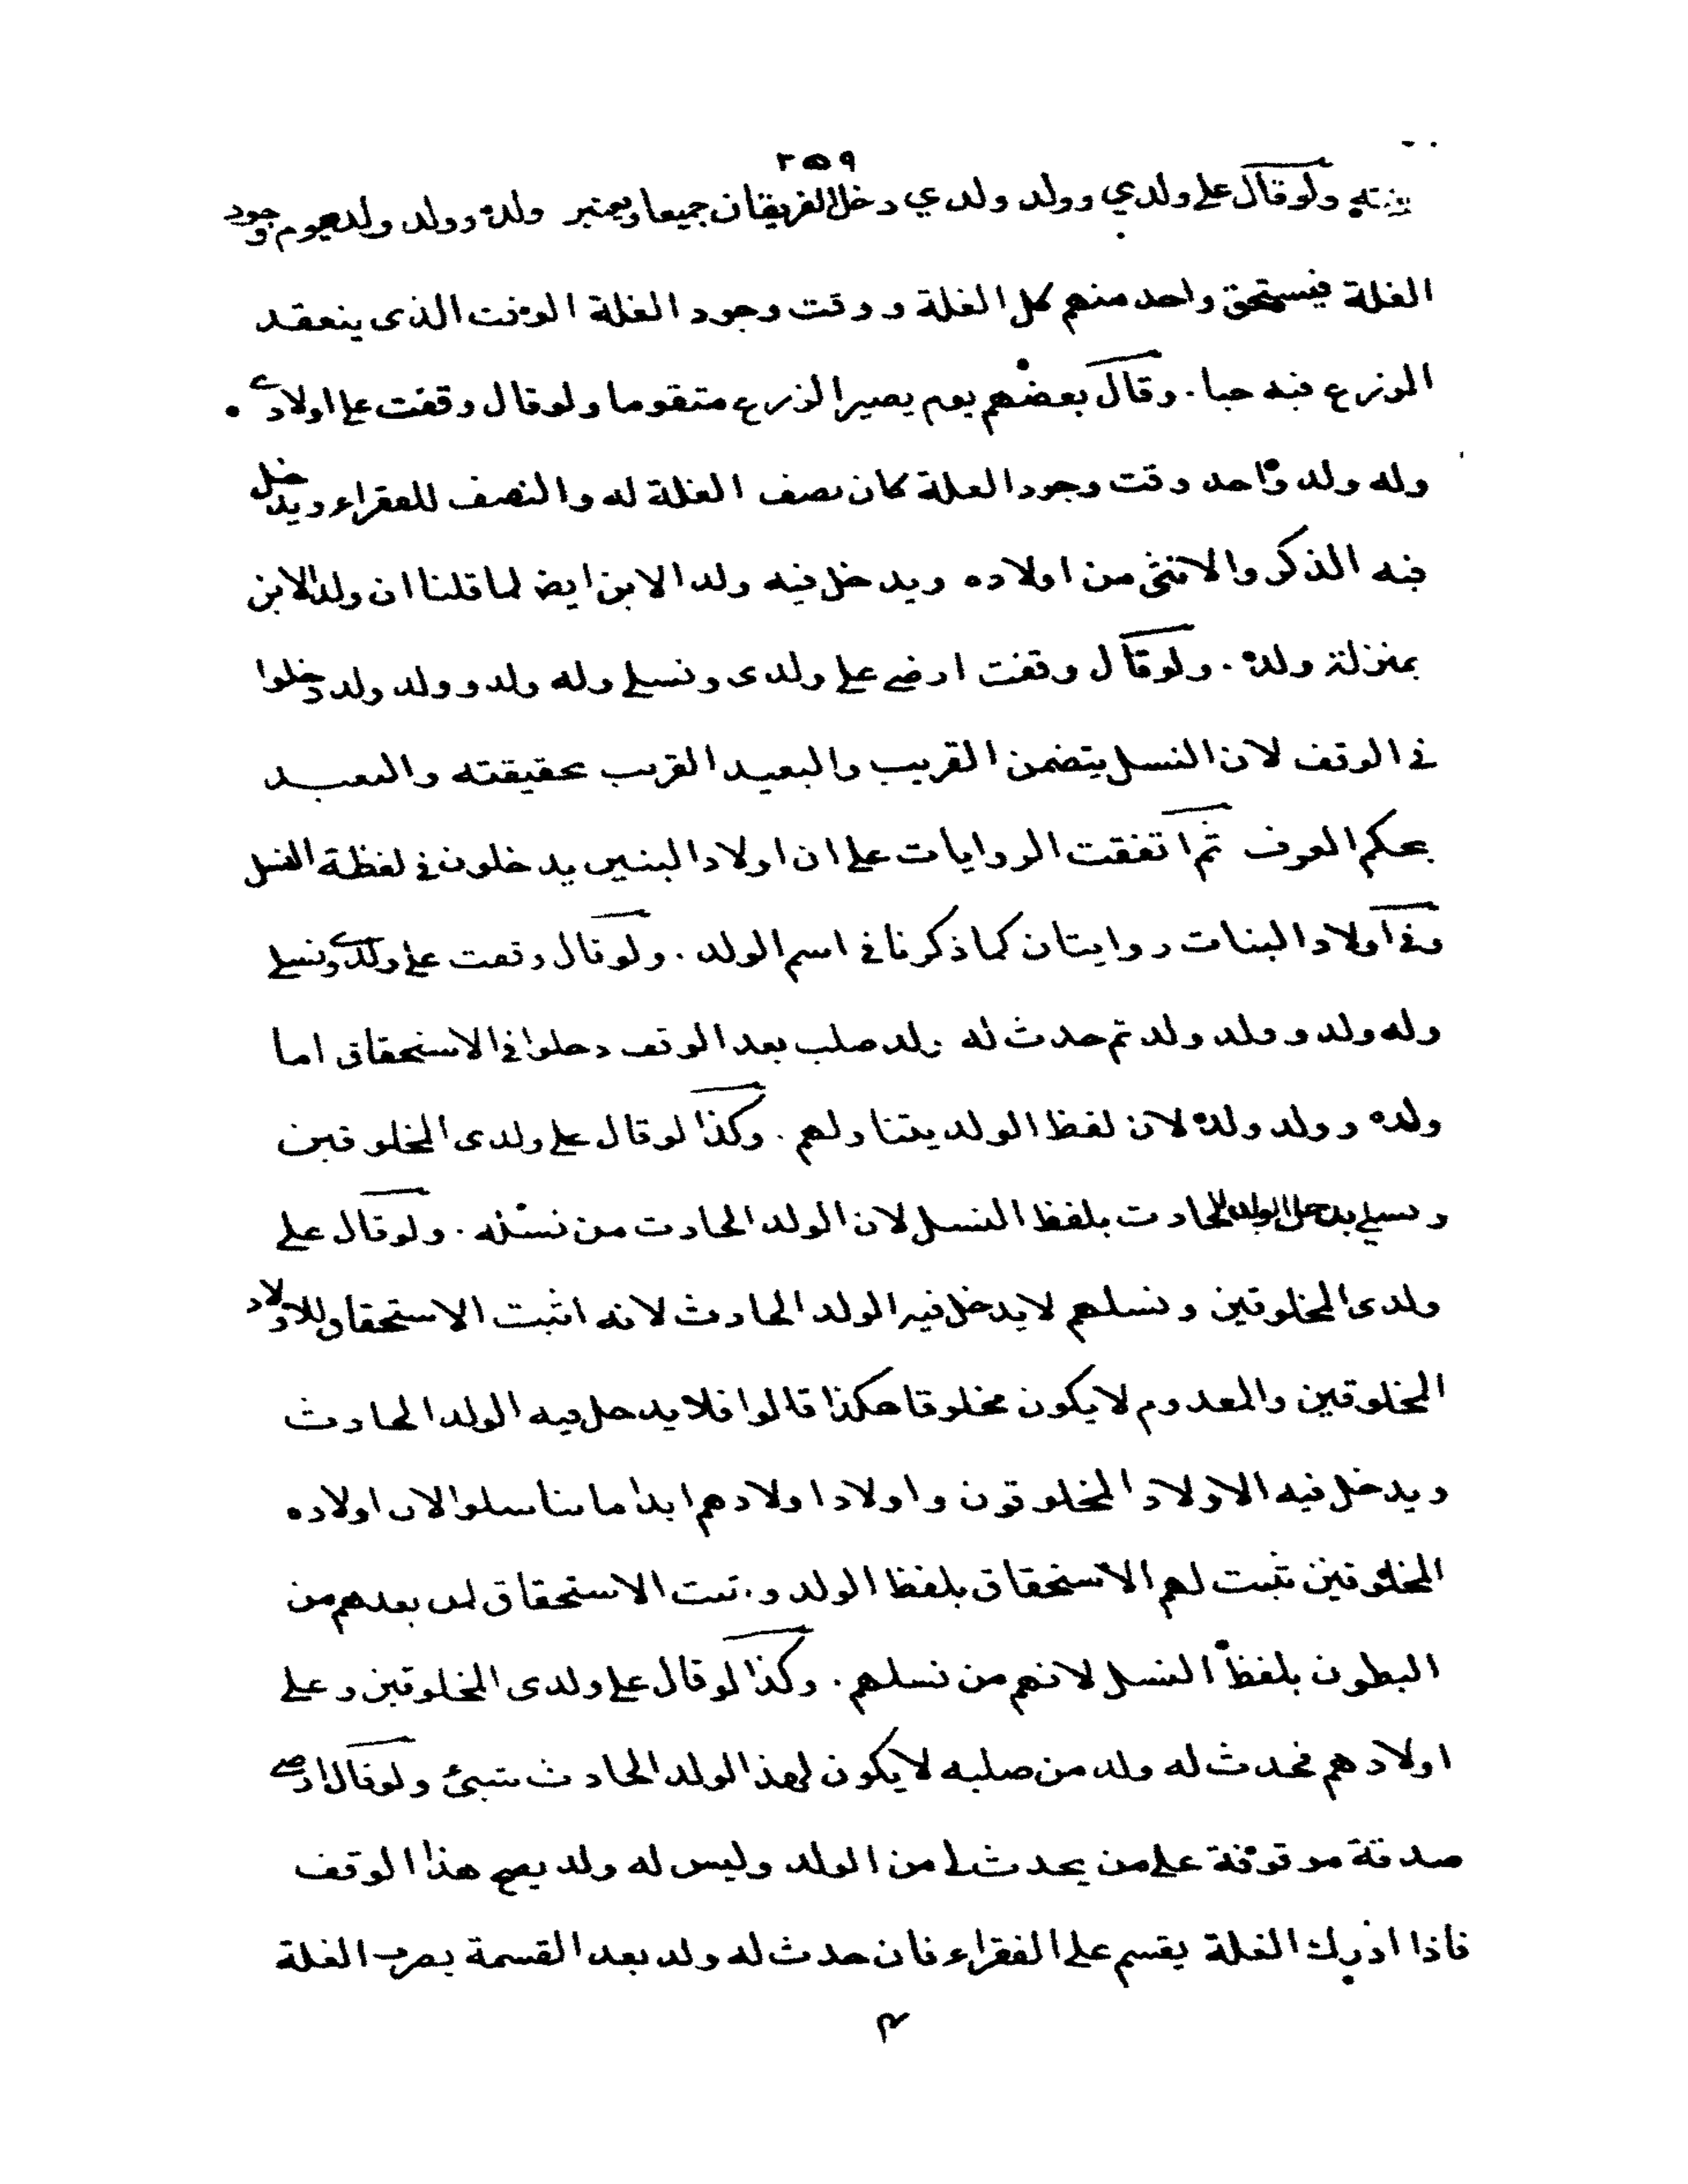 ٢٥٩
ولوقال على ولدي وولد ولدي دخل الفريقان جميعا ويعتبر ولده وولد ولده يوم وجود
الغلة فيستحق واحد منهم كل الغلة ووقت وجود الغلة الوقت الذى ينعقد
الزرع فيه حبا . وقال بعضهم يوم يصير الزرع متقوما ولوقال وقفت على اولادي
وله ولد واحد وقت وجود الغلة كان نصف الغلة له والنصف للفقراء ويدخل
فيه الذكر والانثى من اولاده ويدخل فيه ولد الابن ايضا لما قلنا ان ولد الابن
بمنزلة ولده . ولوقال وقفت ارضى على ولدى ونسلى وله ولد وولد ولد دخلوا
فى الوقف لان النسل يتضمن القريب والبعيد القريب بحقيقته والبعيد
بحكم العرف ثم اتفقت الروايات على ان اولاد البنين يدخلون فى لفظة النسل
وفى اولاد البنات روايتان كما ذكرنا فى اسم الولد . ولوقال وقفت على ولدى ونسلى
وله ولد وولد ولد ثم حدث له ولد صلب بعد الوقف دخلوا فى الاستحقاق اما
ولده وولد ولده لان لفظ الولد يتناولهم . وكذا لوقال على ولدى المخلوقين
ونسلي يدخل الولد الحادث بلفظ النسل لان الولد الحادث من نسله . ولوقال على
ولدى المخلوقين ونسلهم لا يدخل فيه الولد الحادث لانه اثبت الاستحقاق للاولاد
المخلوقين والمعدوم لا يكون مخلوقا هكذا قالوا فلا يدخل فيه الولد الحادث
ويدخل فيه الاولاد المخلوقون واولاد اولادهم ابدا ما تناسلوا لان اولاده
المخلوقين ثبت لهم الاستحقاق بلفظ الولد و ثبت الاستحقاق لمن بعدهم من
البطون بلفظ النسل لانهم من نسلهم . وكذا لوقال على ولدى المخلوقين وعلى
اولادهم فحدث له ولد من صلبه لا يكون لهذا الولد الحادث شيئ ولوقال ارضى
صدقة موقوفة على من يحدث لى من الولد وليس له ولد يصح هذا الوقف
فاذا ادرك الغلة يقسم على الفقراء فان حدث له ولد بعد القسمة يصرف الغلة